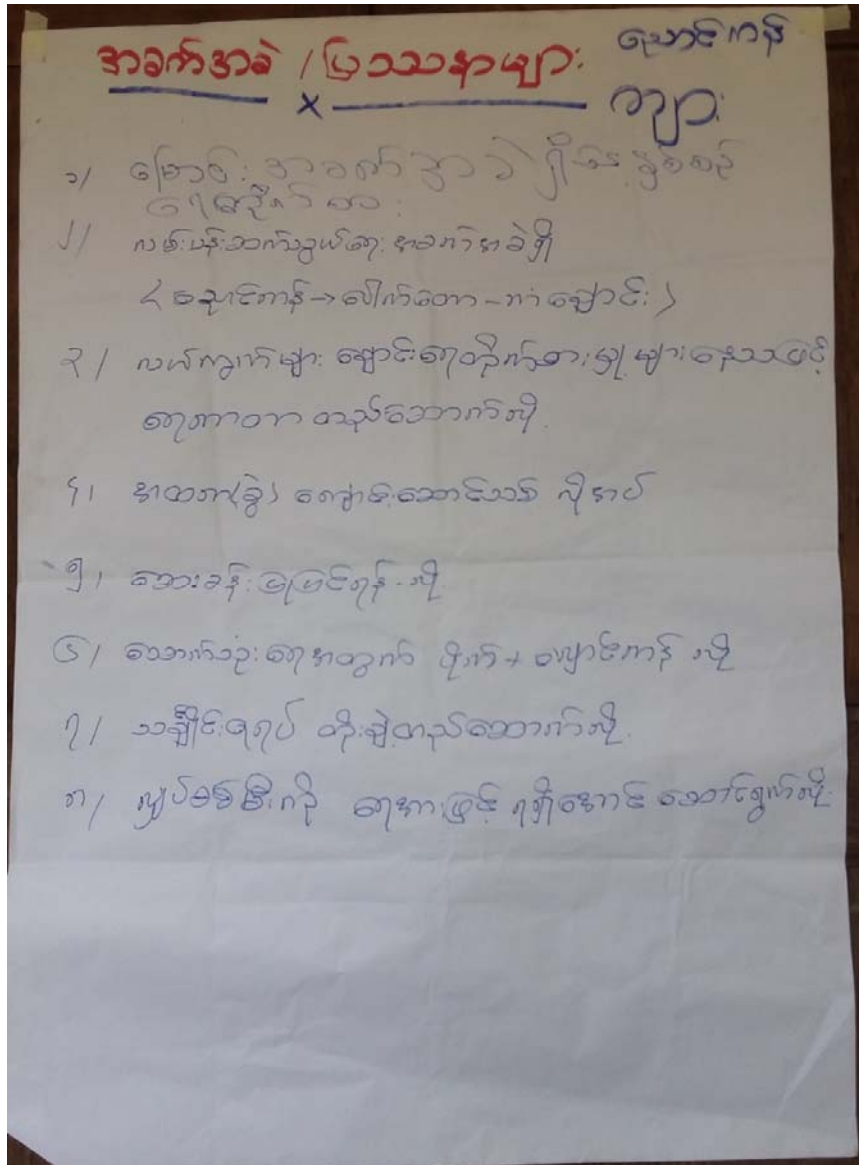 အခက်အခဲ / ပြဿနာများ ညောင်ကန်
ကျား
၁/ အခက်အခဲရှိ နှစ်စဉ်
ရေတိုက်စား
၂/ လမ်းပန်းဆက်သွယ်ရေး အခက်အခဲရှိ
(ညောင်ကန် → ပေါက်တော - ကံချောင်း)
၃/ လယ်ကွက်များ ချောင်းရေတိုက်စားမှုများနေသဖြင့်
ရေကာတာ တည်ဆောက်လို
၄/ အထက(ခွဲ) ကျောင်းဆောင်သစ် လိုအပ်
၅/ ဆေးခန်းပြုပြင်ရန်-လို
၆/ သောက်သုံးရေအတွက် ပိုက် + ကန် လို
၇/ သချိုင်းဇရပ် တိုးချဲ့တည်ဆောက်လို
၈/ လျှပ်စစ်မီးကို ရေအားဖြင့် ရရှိအောင် ဆောင်ရွက်လို